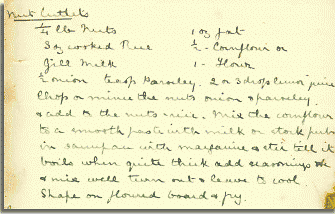 Nut Cutlets
¼ lb Nuts 1 oz fat
3 oz cooked Rice ½ - Cornflour or
Gill Milk 1 - Flour
½ onion teasp Parsley. 2 or 3 drops lemon juice
Chop or mince the nuts onion & parsley
& add to the nuts rice. Mix the cornflour
to a smooth paste with milk or stock put
in saucepan with margarine & stir till it
boils when quite thick add seasonings &
& mix well turn out & leave to cool.
Shape on floured board & fry.